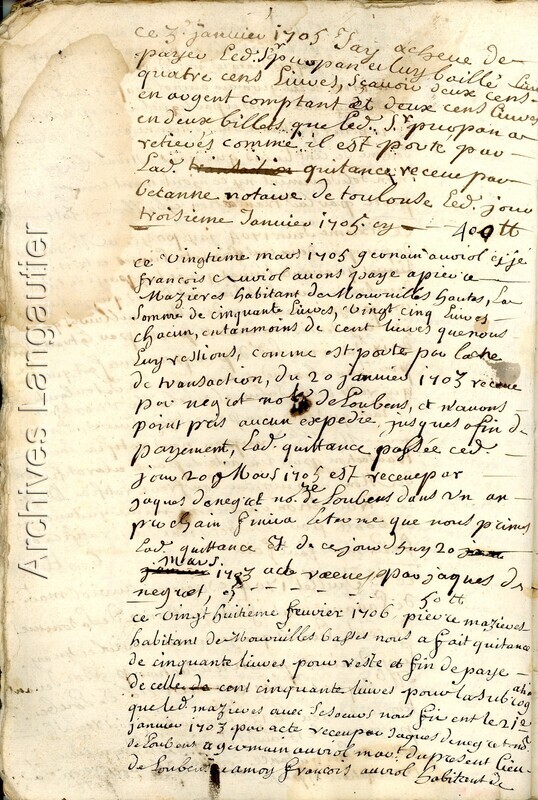 ce 3e janvier 1705 Jay acheve de
payer Led. Sr pruopan et luy baillé
quatre cens Liuves, scavoir deux cens
en argent comptant et deux cens Liuves
en deux billets que led. Sr pruopan a
retirés comme il est porté par
Lad. quitance receue par
betanne notaire de toulouse Led. jour
troisieme Janvier 1705. cy — 400 tt
ce vingtieme mars 1705 germain auriol et jé
françois auriol avons payé a pierre
Mazières habitant de Mourvilles hautes, La
Somme de cinquante Liuves, vingt cinq Liuves
chacun, entanmoins de cent liuves que nous
Luy restions, comme est porté par lacte
de transaction, du 20 janvier 1703 receue
par negrot note de Loubens, et n'avons
point pris aucun expedie, jusques a fin de
payement, Lad. quittance passée ced.
jour 20 Mars 1705 est receue par
jaques de negrot nore de Loubens dans un an
prochain finira le terme que nous primes
Lad. quittance Et de ce jourdhuy 20
Mars
1703 acte receue par jaques de
negrot, 50 tt
ce vingt huitieme feurier 1706 pierre mazieres
habitant de Mourvilles basses nous a fait quitance
de cinquante liuves pour reste et fin de paye
de celle de cent cinquante liuves pour la subrogation
que led. mazieres avec Se soeurs nous firent le 21e
janvier 1703 par acte receu par Jaques de negret no.
de Loubens a germain auriol mart. du present Lieu
de Loubens et a moy françois auriol habitant de
Archives Langautier